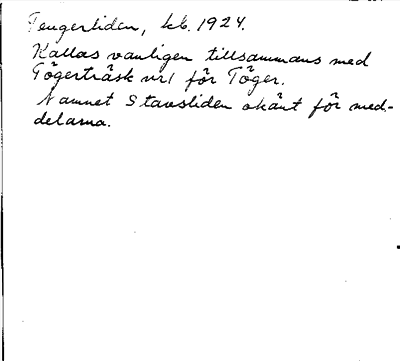 Tengerliden, kb. 1924.
Kallas vanligen tillsammans med
Tögerträsk nr1 för Töger.
Namnet Stavsliden okänt för med-
delarna.